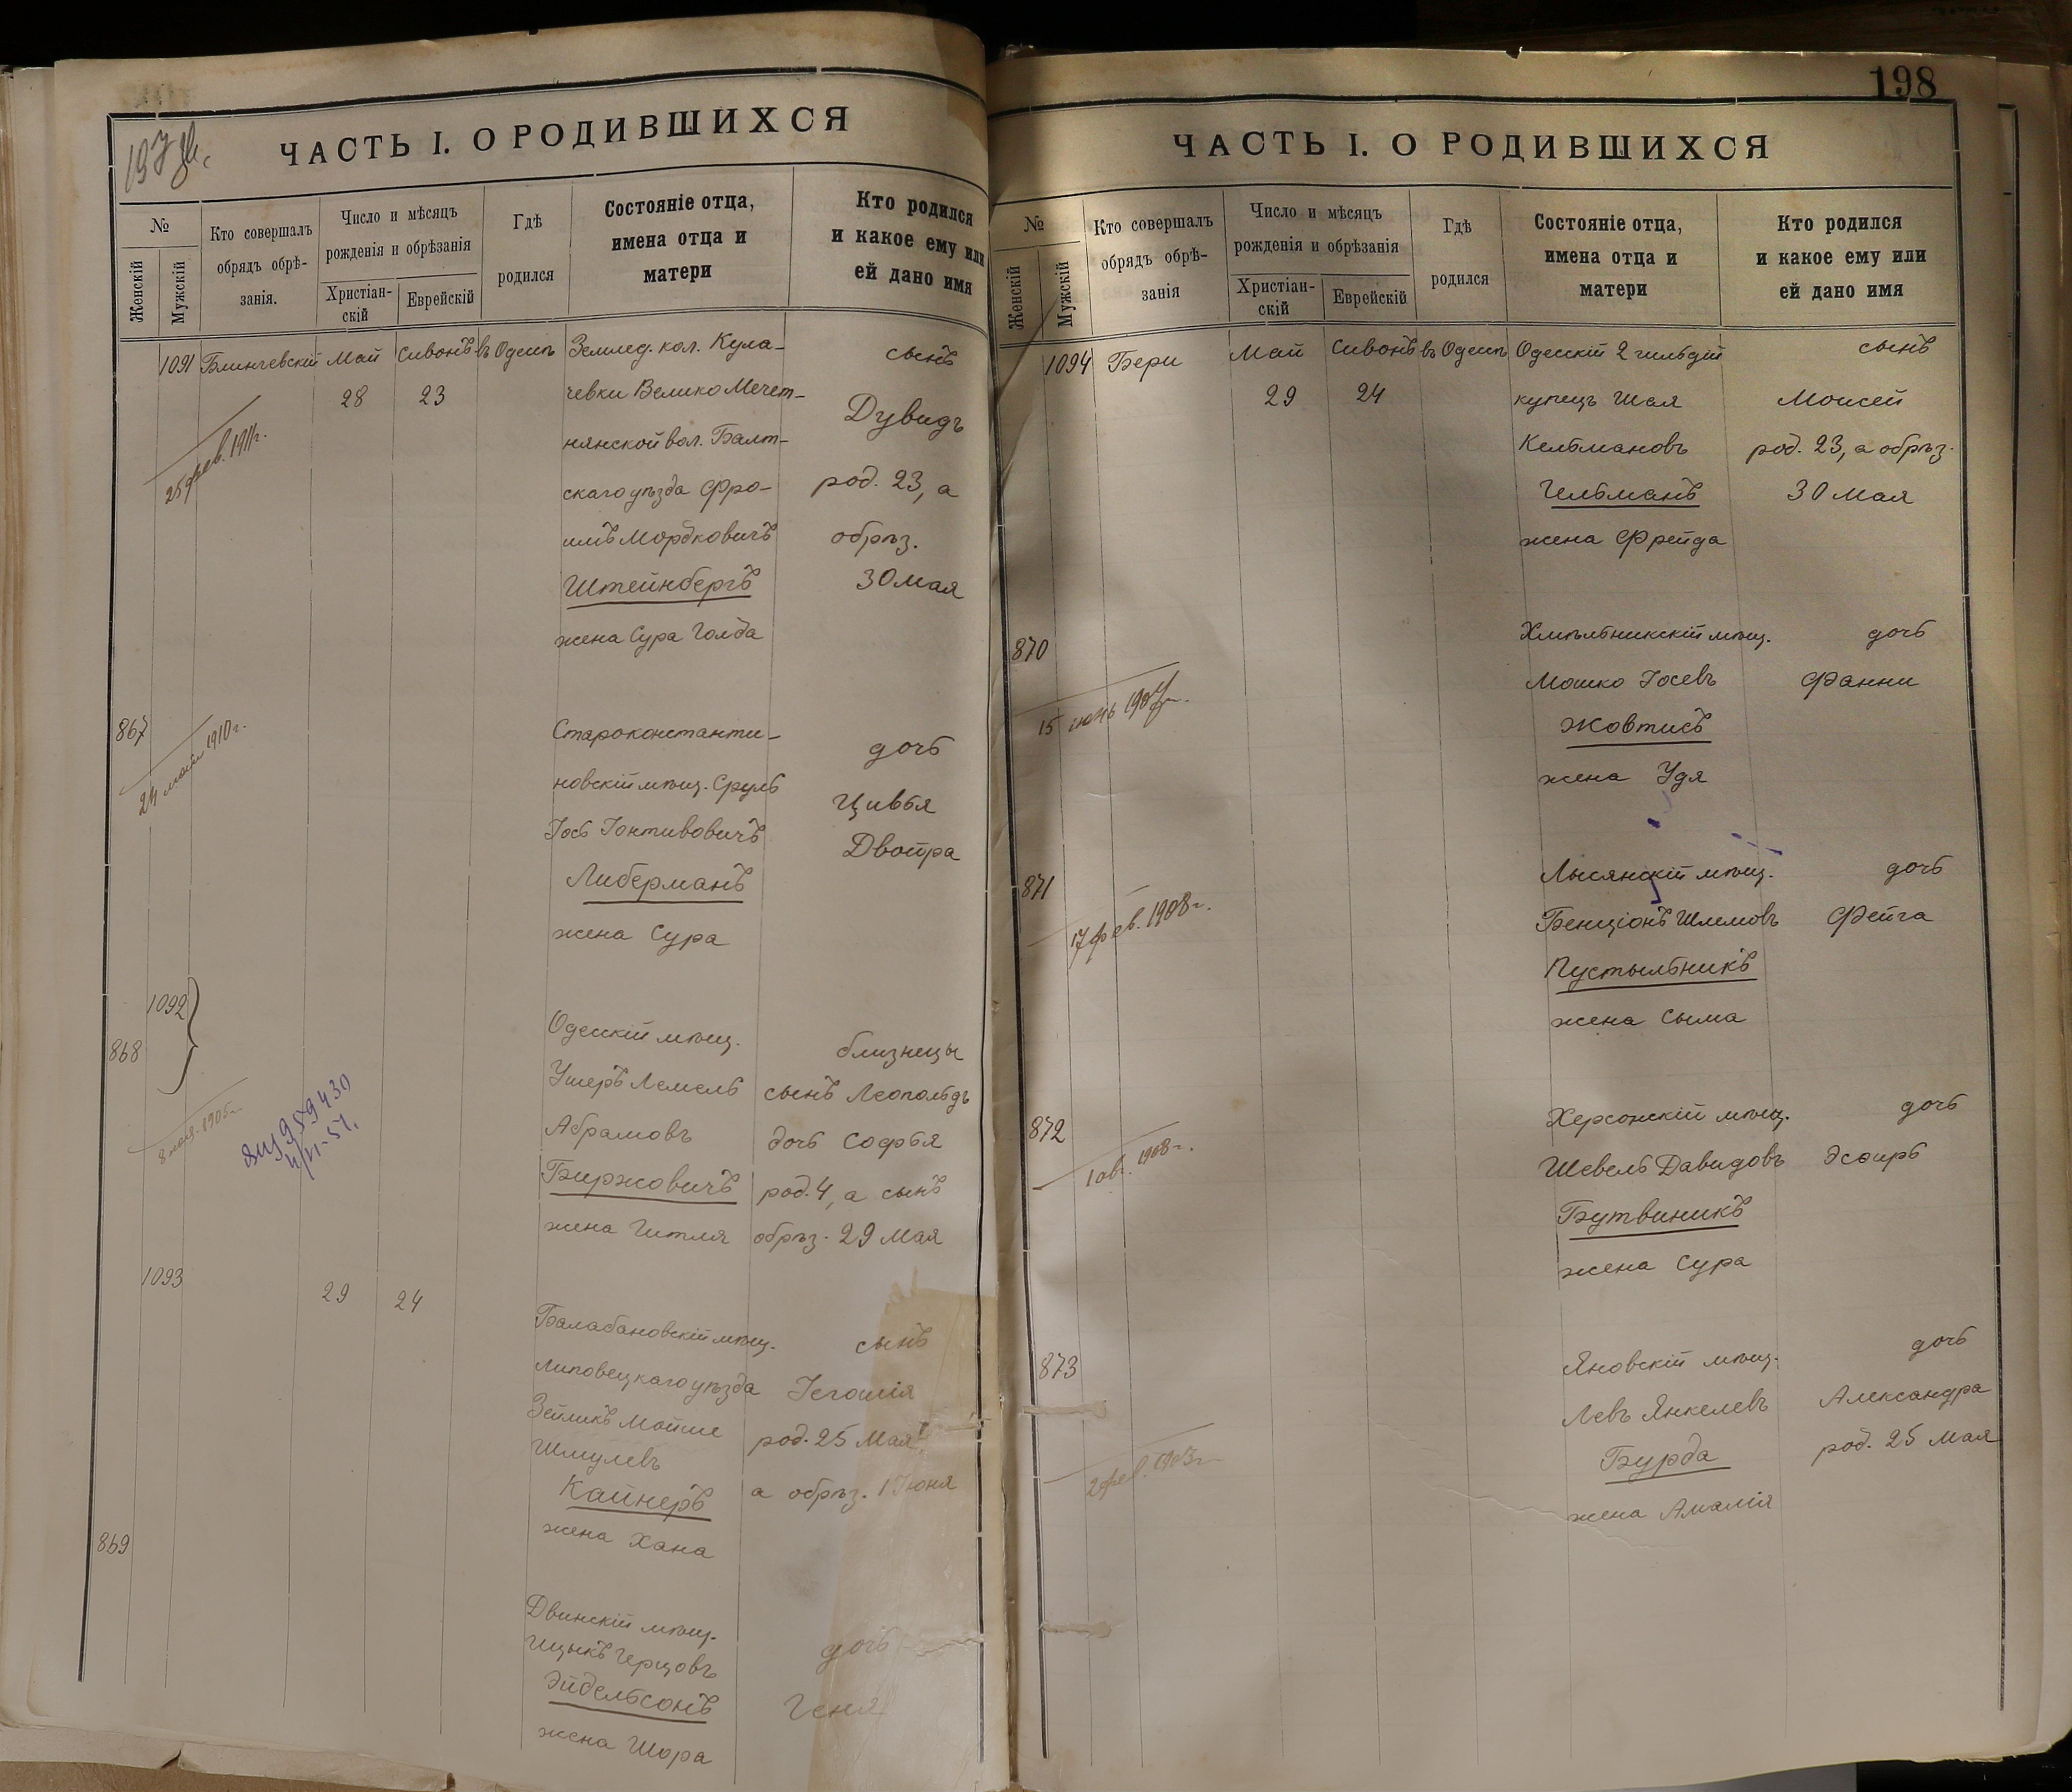 ЧАСТЬ I. О РОДИВШИХСЯ
№
Женскій
Мужскій
Кто совершалъ
обрядъ обрѣ-
занія.
Число и мѣсяцъ
рожденія и обрѣзанія
Христіан-
скій
Еврейскій
Гдѣ
родился
Состояніе отца,
имена отца и
матери
Кто родился
и какое ему или
ей дано имя
1091 Блинчевскій Май Сивонъ въ Одессѣ Землед. кол. Кула- сынъ
28 23 чевки Велико Мечет- Дувидъ
нянской вол. Балт-
25 фев. 1911г.
скаго уѣзда Фро- род. 23, а
имъ Мордковичъ обрѣз.
Штейнбергъ 30 мая
жена Сура Голда
867 Староконстанти- дочь
24 1910г.
новскій мѣщ. Сруль Цивья
Іось Іонтивовичъ Двойра
Либерманъ
жена Сура
1092
868 Одесскій мѣщ. близнецы
Ушеръ Лемель сынъ Леопольдъ
8 мая 1905г.
959430
Абрамовъ дочь Софья
Биржовичъ род. 4, а сынъ
жена Гитля обрѣз. 29 Мая
1093 29 24 Балабановскій мѣщ. сынъ
Липовецкаго уѣзда Іегошія
Зейликъ Мойше род. 25 Мая,
Шмулевъ
Кайнеръ а обрѣз. 1 Іюня
жена Хана
869 Двинскій мѣщ. дочь
Ицыкъ Герцовъ
Эйдельсонъ Геня
жена Шора
198
ЧАСТЬ I. О РОДИВШИХСЯ
№
Женскій
Мужскій
Кто совершалъ
обрядъ обрѣ-
занія
Число и мѣсяцъ
рожденія и обрѣзанія
Христіан-
скій
Еврейскій
Гдѣ
родился
Состояніе отца,
имена отца и
матери
Кто родился
и какое ему или
ей дано имя
1094 Бери Май Сивонъ въ Одессѣ Одесскій 2 гильдіи сынъ
29 24 купецъ Шая Моисей
Кельмановъ род. 23, а обрѣз.
Гельманъ 30 Мая
жена Фрейда
870 Хмѣльникскій мѣщ. дочь
Мошко Іосевъ Фанни
15
Жовтисъ
жена Удя
871 Лысянскій мѣщ. дочь
17 фев. 1908г.
Бенціонъ Шлемовъ Фейга
Пустыльникъ
жена Сыма
872 Херсонскій мѣщ. дочь
1 ав. 1908г.
Шевель Давидовъ Эсѳирь
Бутвиникъ
жена Сура
873 Яновскій мѣщ. дочь
Левъ Янкелевъ Александра
Бурда род. 25 Мая
жена Амалія